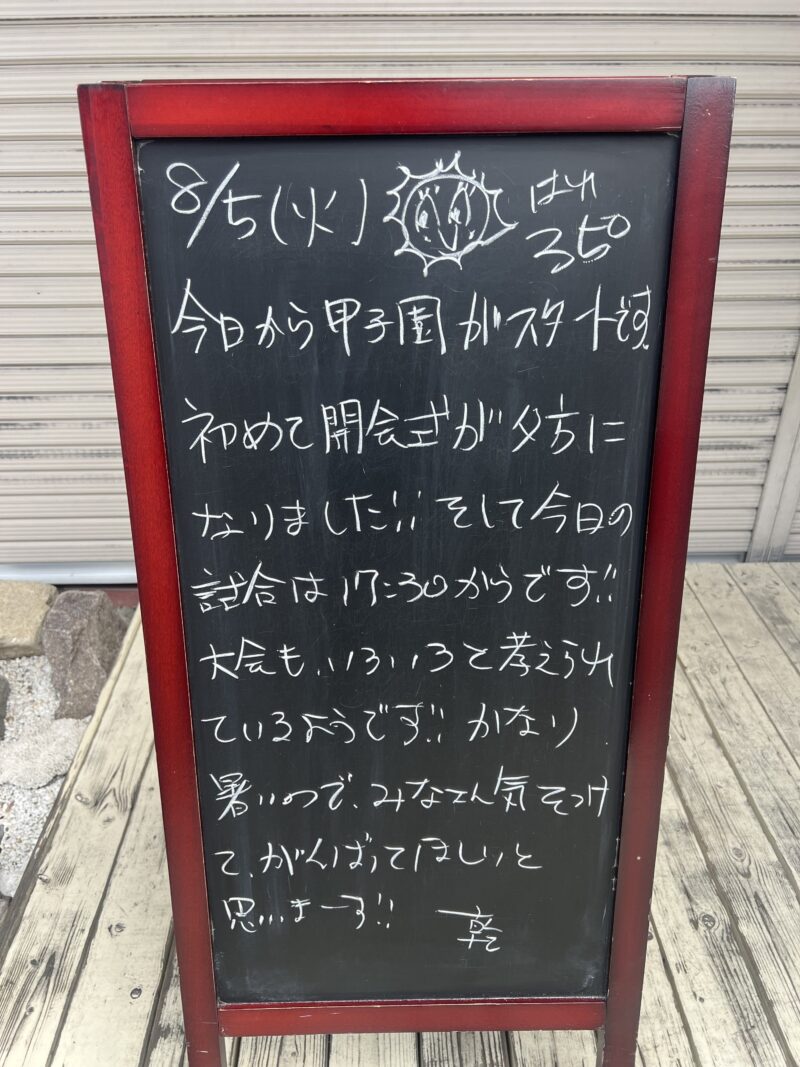 8/5(火) はれ 35°
今日から甲子園がスタートです。
初めて開会式が夕方に
なりました!! そして今日の
試合は17:30からです!!
大会も、いろいろと考えられ
ているようです!! かなり
暑いので、みなさん気をつけ
て、がんばってほしいと
思いまーす!! 乾